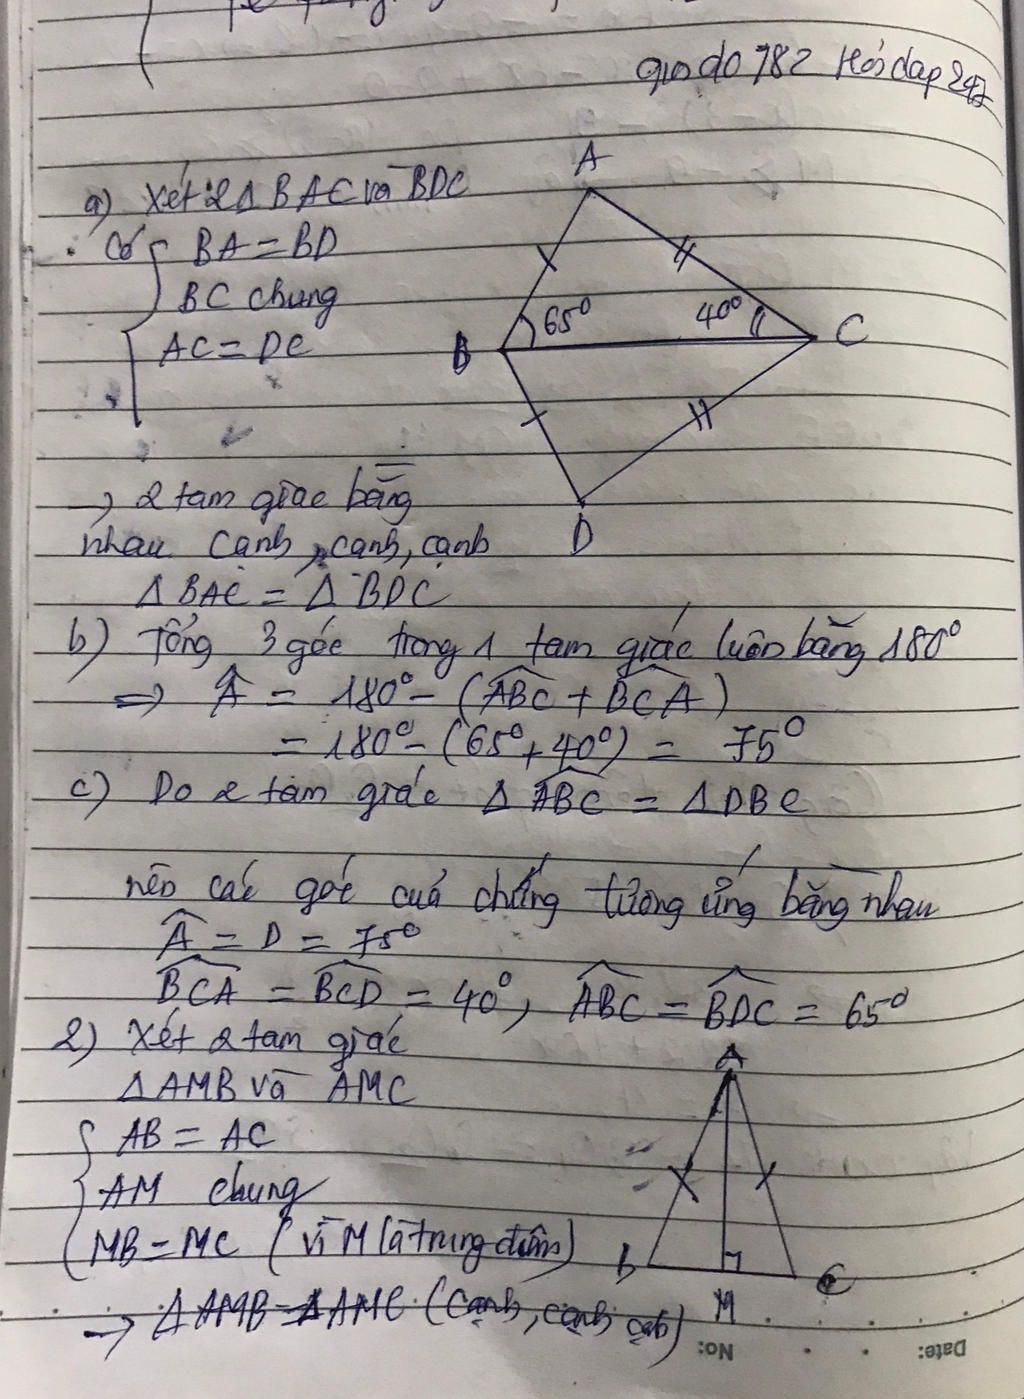 giado782 Hỏi đap 247
a) Xét 2 Δ BAC và BDC
Có BA = BD
BC chung
AC = DC
A
B
65°
40°
C
D
→ 2 tam giác bằng
nhau cạnh, cạnh, cạnh
Δ BAC = Δ BDC
b) Tổng 3 góc trong 1 tam giác luôn bằng 180°
=> Â = 180° - (ABC + BCA)
= 180° - (65° + 40°) = 75°
c) Do 2 tam giác Δ ABC = Δ DBC
nên các góc của chúng tương ứng bằng nhau
Â = D = 75°
BCA = BCD = 40°, ABC = BDC = 65°
2) Xét 2 tam giác
Δ AMB và AMC
AB = AC
AM chung
MB = MC (vì M là trung điểm)
→ Δ AMB = Δ AMC (cạnh, cạnh cạh)
A
B
C
M
No:
Date: